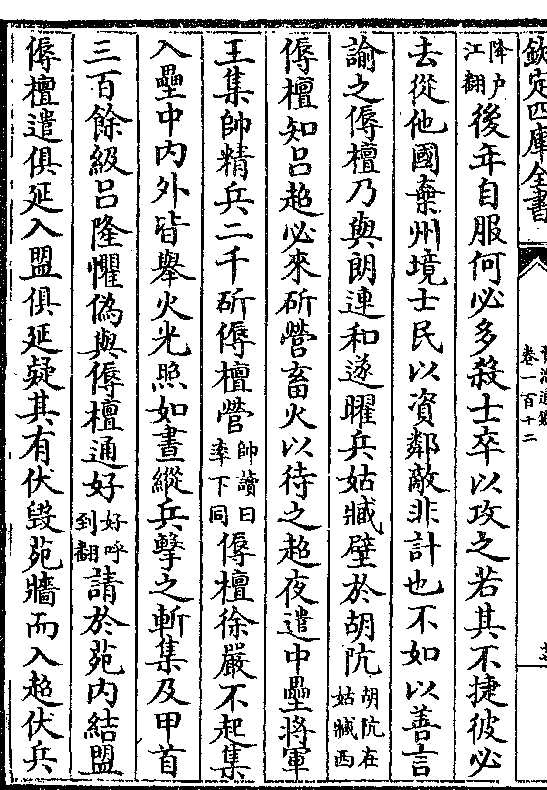 欽定四庫全書
卷一百十二
降户江翻後年自服何必多殺士卒以攻之若其不捷彼必
去從他國棄州境士民以資鄰敵非計也不如以善言
諭之傉檀乃與朗連和遂曜兵姑臧壁於胡阬胡阬在姑臧西
傉檀知吕超必來斫營畜火以待之超夜遣中壘將軍
王集帥精兵二千斫傉檀營帥讀曰率下同傉檀徐嚴不起集
入壘中内外皆舉火光照如晝縱兵擊之斬集及甲首
三百餘級吕隆懼偽與傉檀通好好呼到翻請於苑内結盟
傉檀遣俱延入盟俱延疑其有伏毁苑牆而入超伏兵